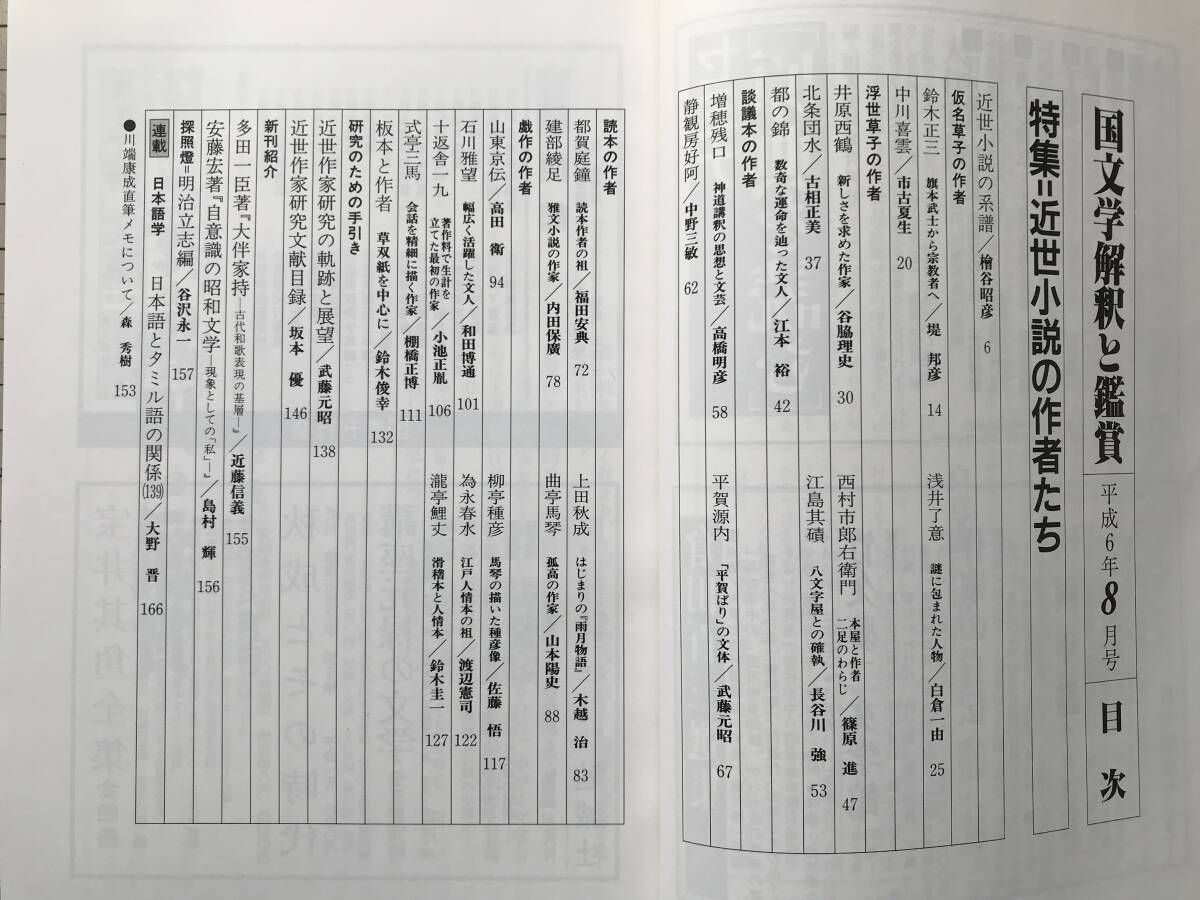 国文学解釈と鑑賞 平成6年8月号 目次
特集=近世小説の作者たち
近世小説の系譜/檜谷昭彦 6
仮名草子の作者
鈴木正三 旗本武士から宗教者へ/堤 邦彦 14
浅井了意 謎に包まれた人物/白倉一由 25
中川喜雲/市古夏生 20
浮世草子の作者
井原西鶴 新しさを求めた作家/谷脇理史 30
西村市郎右衛門 本屋と作者 二足のわらじ/篠原 進 47
北条団水/古相正美 37
江島其磧 八文字屋との確執/長谷川 強 53
都の錦 数奇な運命を辿った文人/江本 裕 42
談議本の作者
増穂残口 神道講釈の思想と文芸/高橋明彦 58
平賀源内 「平賀ばり」の文体/武藤元昭 67
静観房好阿/中野三敏 62
読本の作者
都賀庭鐘 読本作者の祖/福田安典 72
上田秋成 はじまりの『雨月物語』/木越 治 83
建部綾足 雅文小説の作家/内田保廣 78
曲亭馬琴 孤高の作家/山本陽史 88
戯作の作者
山東京伝/高田 衛 94
柳亭種彦 馬琴の描いた種彦像/佐藤 悟 117
石川雅望 幅広く活躍した文人/和田博通 101
為永春水 江戸人情本の祖/渡辺憲司 122
十返舎一九 著作料で生計を立てた最初の作家/小池正胤 106
瀧亭鯉丈 滑稽本と人情本/鈴木圭一 127
式亭三馬 会話を精細に描く作家/棚橋正博 111
板本と作者 草双紙を中心に/鈴木俊幸 132
研究のための手引き
近世作家研究の軌跡と展望/武藤元昭 138
近世作家研究文献目録/坂本 優 146
新刊紹介
多田一臣著『大伴家持―古代和歌表現の基層―』/近藤信義 155
安藤宏著『自意識の昭和文学―現象としての「私」―』/島村 輝 156
探照燈=明治立志編/谷沢永一 157
連載 日本語学 日本語とタミル語の関係(139)/大野 晋 166
●川端康成直筆メモについて/森 秀樹 153